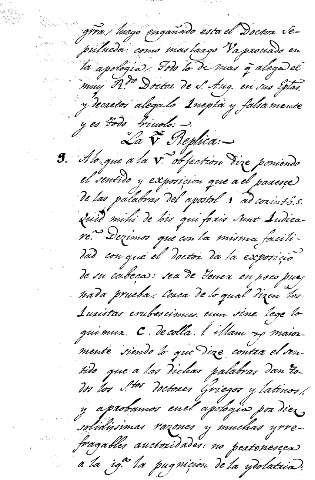 guerra, luego engañado esta el Doctor Se-
pulueda: como mas largo Va prouado en
la apologia. Todo lo de mas q̃ alega el
muy R.do Doctor de S. Aug. en sus Epłas,
y decretos alegalo Inepta y falsamente
y es todo friuolo:-
La V.ª Replica:-
A lo que a la V.ª objection dize poniendo
el sentido y exposicion que a el parece
de las palabras del apostol 1 ad corinth: 5.
Quid mihi de his qui foris sunt Iudica-
re. Dezimos que con la misma facili-
dad con que el doctor da la exposiciõ
de su cabeça: sea de tener en poco pues
nada prueba: cerca de lo qual dizen los
Iuristas erubescimus cum sine lege lo-
quimur. C. de colla. l. illam, y maior-
mente siendo lo que dize contra el sen-
tido que a las dichas palabras dan to-
dos los S.tos doctores Griegos y latinos,
y aprobamos en el apologia por diez
solidissimas razones y muchas yrre-
fragables auctoridades: no pertenesçer
a la ygl.ª la pugnicion de la ydolatria